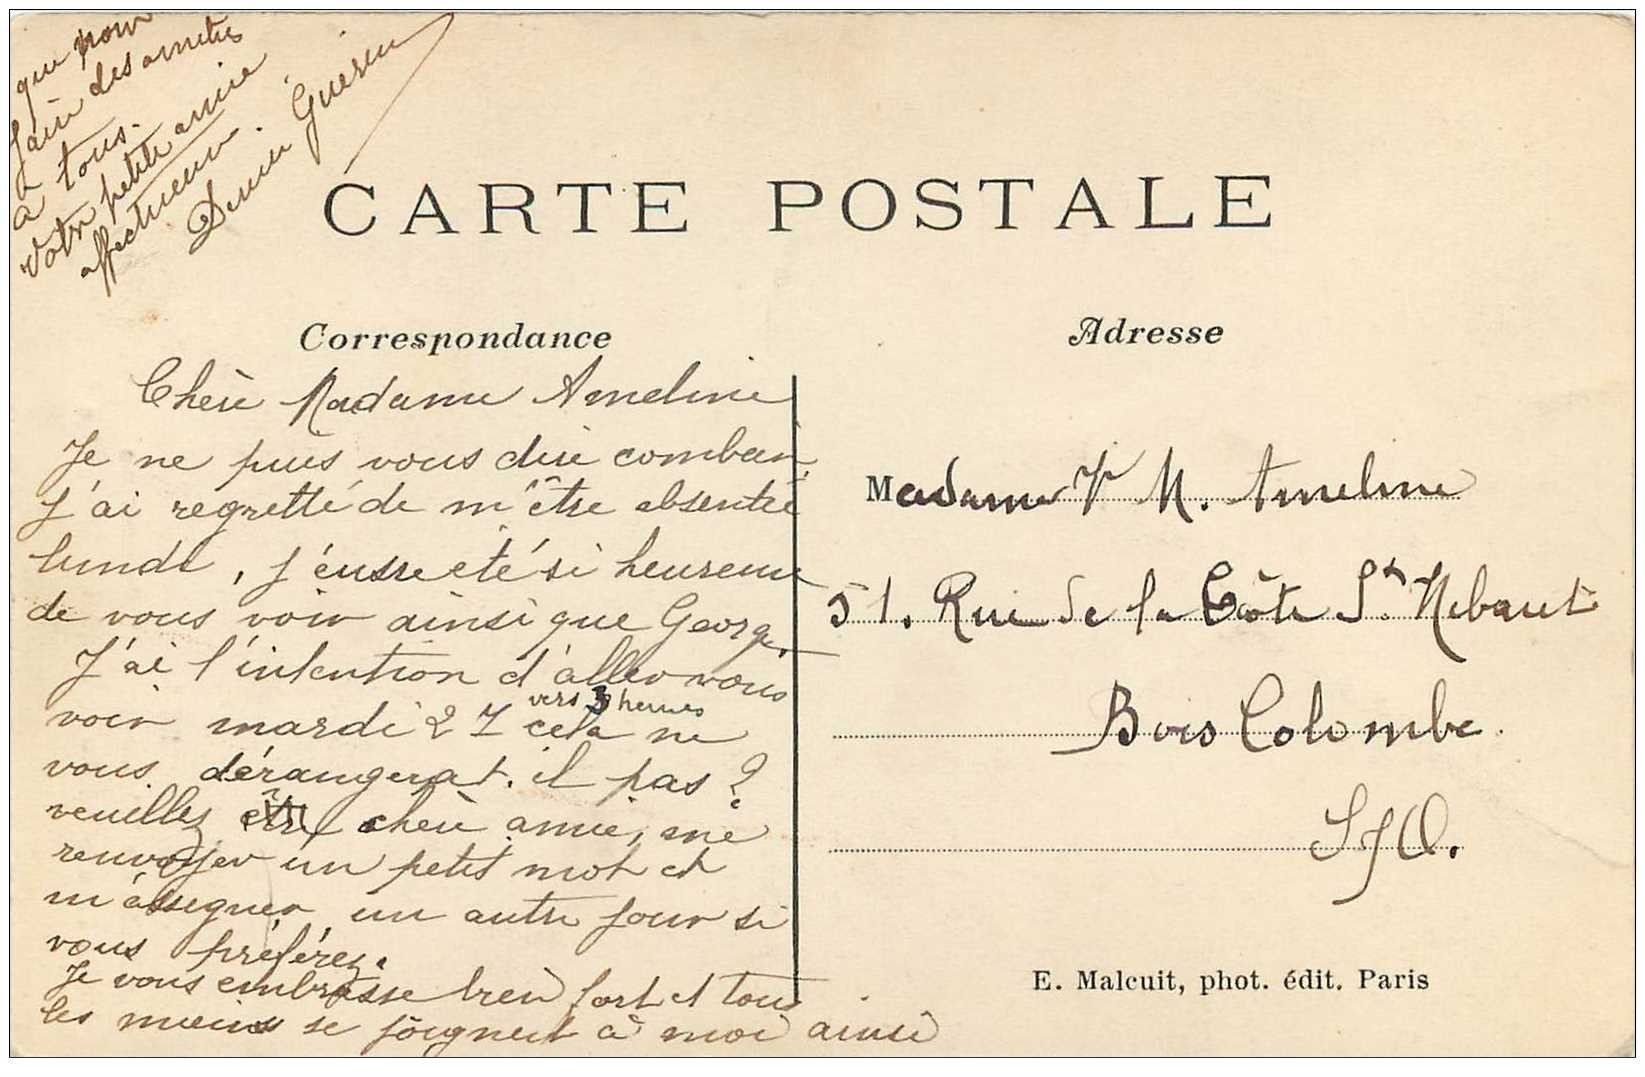 CARTE POSTALE
Correspondance
Chère Madame Ameline
Je ne puis vous dire combien
j'ai regretté de m'être absentée
lundi, j'eusse été si heureuse
de vous voir ainsi que George.
J'ai l'intention d'aller vous
vers 3 heures
voir mardi 27 cela ne
vous dérangerat.il pas?
veuillez chère amie, me
renvoyer un petit mot et
m'assigner un autre jour si
vous préférez.
Je vous embrasse bien fort et tous
les miens se joignent à moi ainsi
que pour
faire des amitiés
à tous.
Votre petite amie
affectueuse.
Guérin
Adresse
Madame Vve M. Ameline
51. Rue de la Côte St. 
Bois Colombe
S/O.
E. Malcuit, phot. édit. Paris